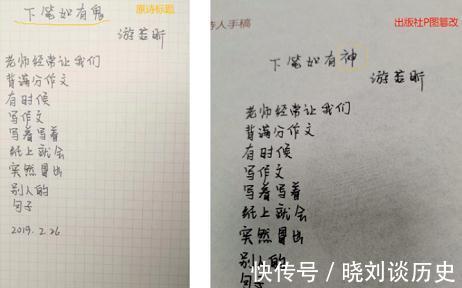 下笔如有鬼
原诗标题
游若昕
老师经常让我们
背满分作文
有时候
写作文
写着写着
纸上就会
突然冒出
别人的
句子
2019.2.26
诗人手稿
出版社P图篡改
下笔如有神
游若昕
老师经常让我们
背满分作文
有时候
写作文
写着写着
纸上就会
突然冒出
别人的
句子
快传号/晓刘谈历史